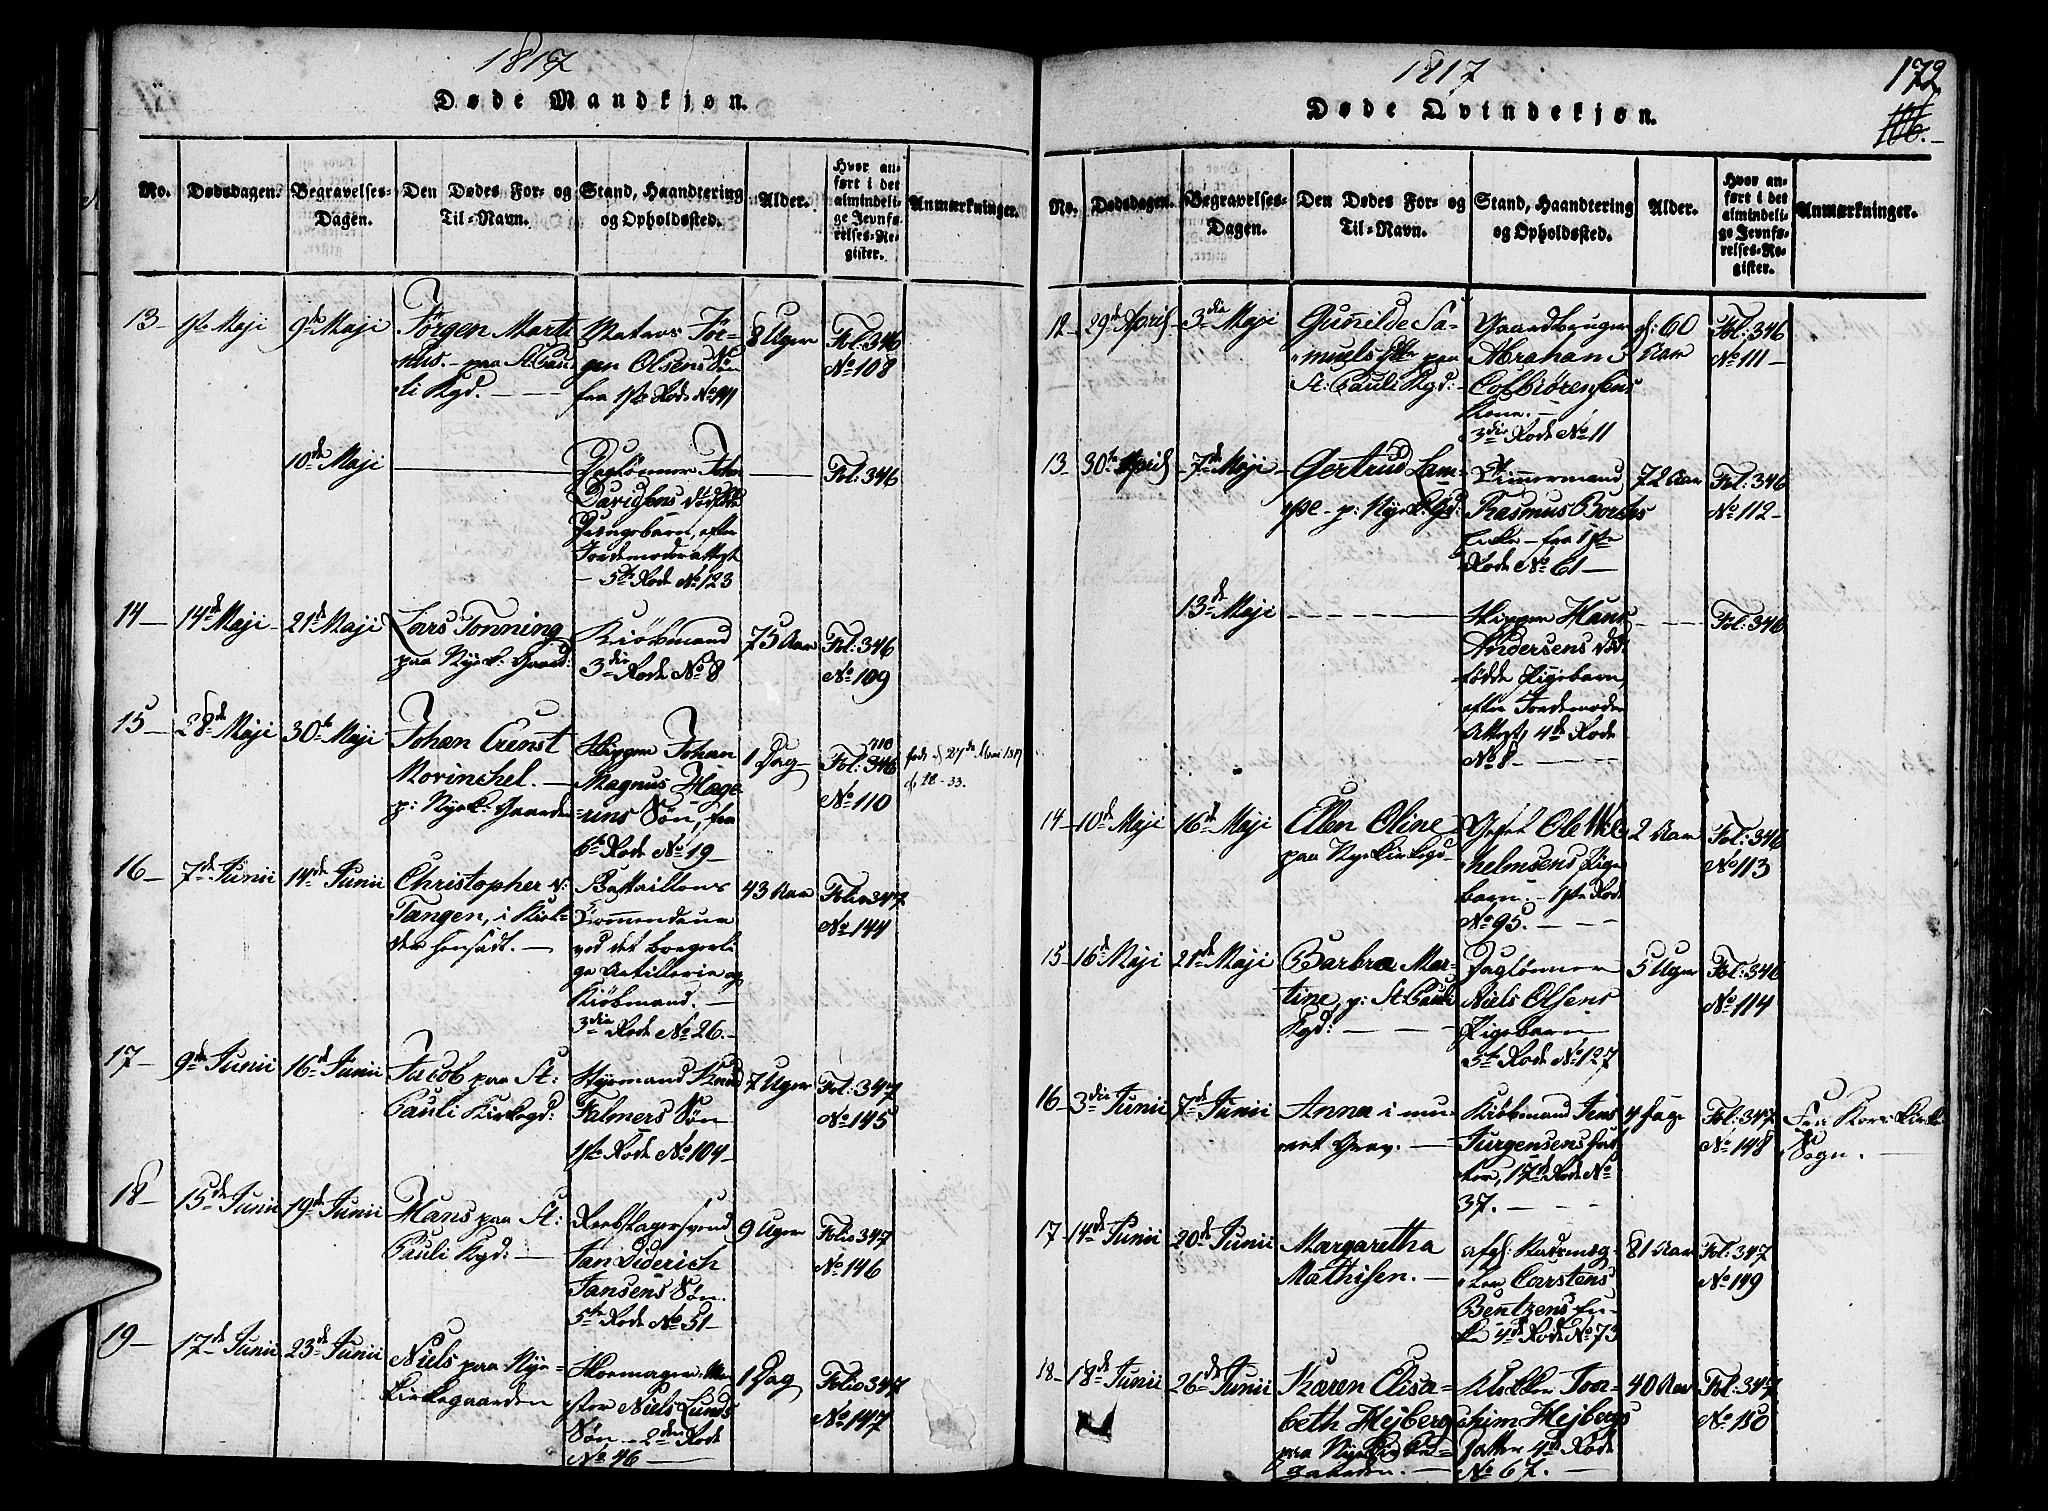 1817
Døde Mandkjøn.
No.
Dødsdagen.
Begravelses-
Dagen.
Den Dødes For- og
Til-Navn.
Stand, Haandtering
og Opholdssted.
Alder.
Hvor an-
ført i det
almindeli-
ge Jevnfø-
relses-Re-
gister.
Anmærkninger.
13 -
1ste Maji
9de Maji
Jörgen Marti
nus. - paa St. Pau
li Kgd. -
Matros Jör-
gen Olsens Sön
fra 1ste Rode No 141
8 Uger
Fol: 346
No 108
10de Maji
Daglönner John
Davidsens dödfödte
Drengebarn, efter
Jordemoderattest
- 5te Rode No 123
Fol: 346
14 -
14de Maji
21de Maji
Lars Tonning
paa Nyek. Gaard:
Kiöbmand
3die Rode No 8
75 Aar
Fol: 346
No 109
15 -
28de Maji
30te Maji
Johan Ernst
Morinchel. -
p: Nyek. Gaarden
Skipper Johan
Magnus Hage
=uns Sön, fra
6te Rode No 19 -
1 Dag
110
Fol: 346
No 110
föd d 27de Mai 1817
16 -
7de Junii
14de Junii
Christopher v:
Tangen, i Kirk-
den hensadt. -
Battaillons
Commendeur
ved det borgerli
ge Artillerie og
Kiöbmand. -
3die Rode No 26. -
43 Aar
Folio 347
No 144
17 -
9de Junii
16de Junii
Jacob paa St:
Pauli Kirkegd:
Styrmand Knud
Falmers Sön
1ste Rode No 104 -
7 Uger
Fol: 347
No 145
18 -
15de Junii
19de Junii
Hans paa St:
Pauli Kgd: -
Reebslagersvend
Jan Diderich
Jansens Sön.
5te Rode No 51 -
9 Uger
Folio 347
No 146
19 -
17de Junii
23de Junii
Niels paa Nye=
Kirkegaarden
Skoemager Me
ster Niels Lunds
Sön - 2den Rode
No 46 -
1 Dag
Folio 347
No 147
1817
172
106. -
Døde Qvindekjøn.
No.
Dødsdagen.
Begravelses-
Dagen.
Den Dødes For- og
Til-Navn.
Stand, Haandtering
og Opholdssted.
Alder.
Hvor an-
ført i det
almindeli-
ge Jevnfø-
relses-Re-
gister.
Anmærkninger.
12 -
29de April
3die Maji
Gunilde Sa-
muels dtr paa
St: Pauli Kgd: -
Gaardbruger
Abraham
Colbiörensens
Kone. -
3die Rode No 11
gl: 60
Aar
Fol: 346
No 111 -
13 -
30te April
7de Maji
Gertrud Lam-
pe - p: Nyek. Kgd:
Timmermand
Rasmus Borchs
Enke - fra 1ste
Rode No 61 -
72 Aar
Fol: 346
No 112 -
13de Maji
Skipper Hans
Andersens död
födde Pigebarn,
efter Jordemoder
Attest, 4de Rode
No 8 -
Fol: 346
14 -
10de Maji
16de Maji
Ellen Oline
paa Nyekirkegd -
Gesel Ole Wil
helmsens Pige
barn. - 1ste Rode
No 95. -
2 Aar
Fol: 346
No 113
15 -
16de Maji
21de Maji
Barbra Mar-
tine, p: St: Pauli
Kgd: -
Daglönner
Niels Olsens
Pigebarn
5te Rode No 127
5 Uger
Fol: 346
No 114
16 -
3die Junii
7de Junii
Anna i mu
ret Grav. -
Kiöbmand Jens
Jurgensens Dat
ter, 17de Rode No
37. -
4 Dage
Fol: 347
No 148
Fra Kors Kirke
Sogn. -
17 -
14de Junii
20de Junii
Margaretha
Mathisen. -
afg: Kudsmæg-
ler Carstens
Bentzens En-
ke 4de Rode No 73
81 Aar
Fol: 347
No 149
18 -
18de Junii
26de Junii
Karen Elisa-
beth Hejbergs
paa Nyekirke
gaarden. -
Klokker Joa-
chim Hejbergs
Datter 4de Rode
No 67. -
40 Aar
Fol: 347
No 150